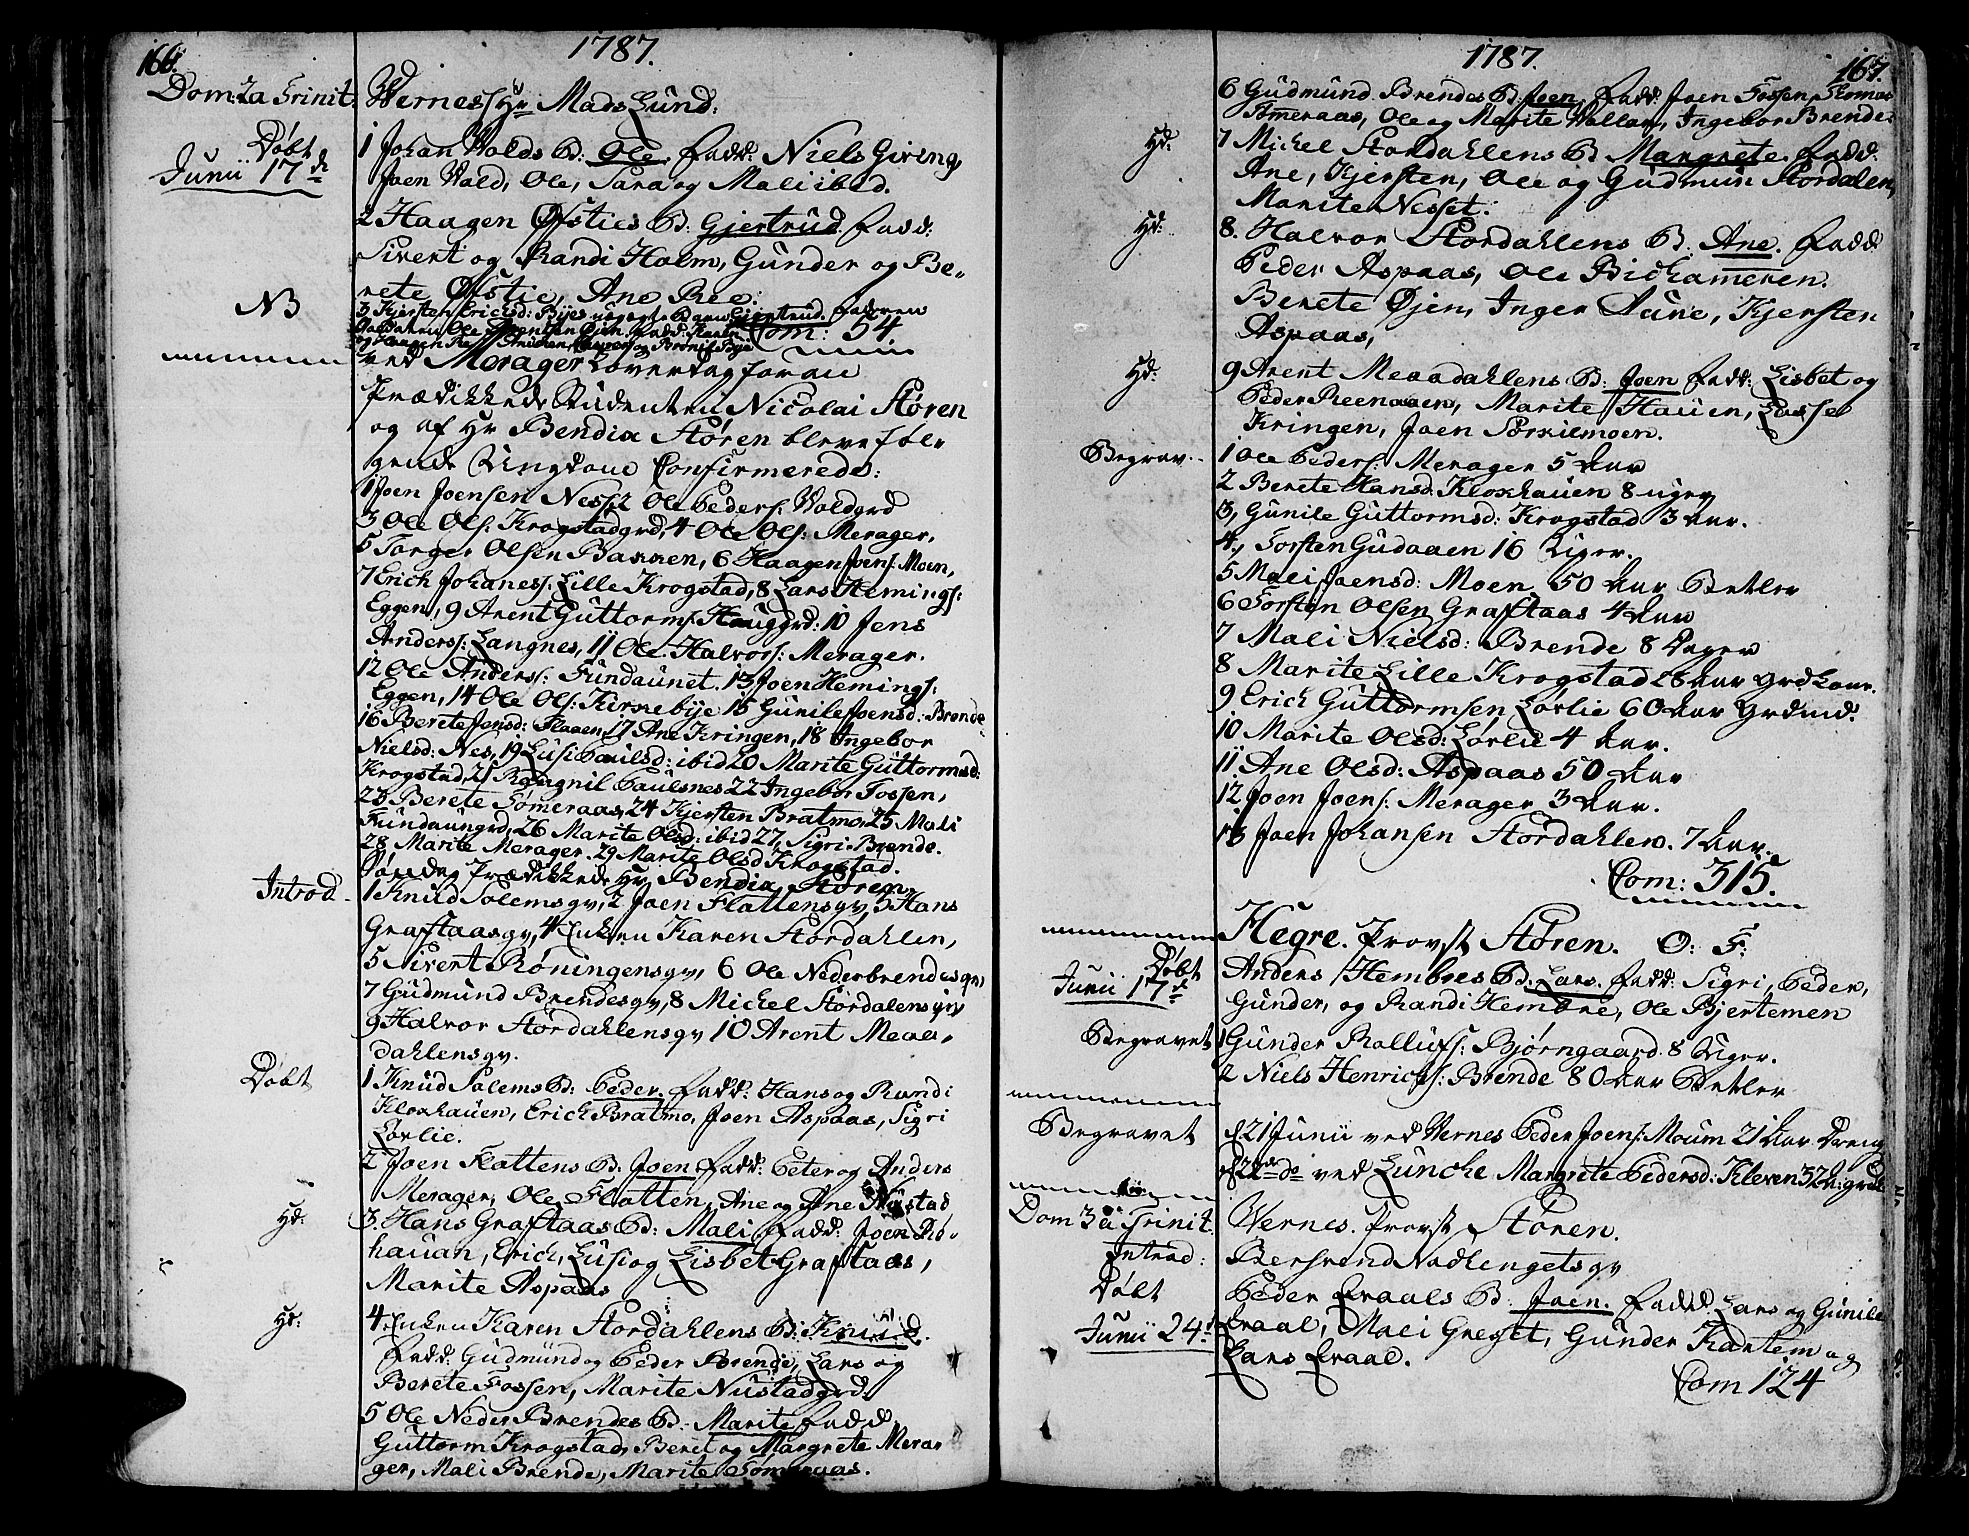 166.
1787.
Dom: 2a Trinit. Wernes Hr Mads Lund.
Døbt
Junii 17de
1 Johan Volds B: Ole. Fadd: Niels Giving,
Joen Vold, Ole, Sara og Mali ibid.
2 Haagen Øfsties B: Gjertrud. Fadd:
Sivert og Randi Holm, Gunder og Be-
rete Øfstie, Ane Ree.
NB
3 Kjersten Erichsd: Byes uegte Barn Gjertrud. Faderen
Com: 54
ved Merager Løverdag foran
Prædikkede Studenten Nicolai Støren
og af Hr Bendix Støren bleve føl-
gende Ungdom Confirmerede:
1 Joen Joensen Nesset 2 Ole Peders: Voldgrd
3 Ole Ols: Krogstadgrd, 4 Ole Ols: Merager,
5 Torger Olsen Bakken, 6 Haagen Joens: Moen,
7 Erich Johaness: Lille Krogstad, 8 Lars Hemings:
Eggen, 9 Arent Guttorms: Hauggrd: 10 Jens
Anderss: Langnes, 11 Ole Halvors: Merager.
12 Ole Anderss: Fundaunet. 13 Joen Hemings:
Eggen, 14 Ole Ols: Kirkebye 15 Gunile Joensd: Brende
16 Berete Jensd: Flaaen, 17 Ane Kringen, 18 Ingebor
Nielsd: Nes, 19 Lusi Paulsd: ibid 20 Marite Guttormsd:
Krogstad, 21 Rangnil Paulsnes 22 Ingebor Fossen,
23 Berete Tømeraas, 24 Kjersten Bratmo, 25 Mali
Fundaungrd, 26 Marite Olsd: ibid 27, Sigri Brende.
28 Marite Merager. 29 Marite Olsd Krogstad.
Søndag Prædikkede Hr Bendix Støren.
Introd.
1 Knud Solemsqv, 2 Joen Flattensqv, 3 Hans
Graftaasqv, 4 Enken Karen Stordahlen,
5 Sivert Røningensqv, 6 Ole Nederbrendesqv,
7 Gudmund Brendesqv, 8 Michel Stordalensqv
9 Halvor Stordahlensqv 10 Arent Meaa-
dahlensqv.
Døbt
1 Knud Solems B: Peder. Fadd: Hans og Randi
Kloxhauen, Erich Bratmo, Joen Aspaas, Sigri
Lørlie.
2 Joen Flattens B: Joen. Fadd: Peter og Anders
Merager, Ole Flatten, Ane og Ane Nustad
Hd:
3. Hans Graftaas B: Mali. Fadd: Joen Rø-
hauan, Erich, Lusi og Lisbet Graftaas,
Marite Aspaas
Hd:
4 Enken Karen Stordahlens B: Knud.
Fadd: Gudmund og Peder Brende, Lars og
Berete Fossen, Marite Nustadgrd.
5 Ole Neder Brendes B: Marite. Fadd.
Guttorm Krogstad, Beret og Margrete Mera-
ger, Mali Brende, Marite Tømeraas.
1787.
167.
6 Gudmund Brendes B. Joen. Fadd. Joen Fossen, Thomas
Tømeraas, Ole og Marite Vollan, Ingebor Brende.
Hd:
7 Michel Stordahlens B Margrete. Fadd:
Ane, Kjersten, Ole og Gudmun Stordalen,
Marite Nesset.
Hd:
8. Halvor Stordahlens B. Ane. Fadd
Peder Aspaas, Ole Bidkameren.
Berete Øjen, Inger Aune, Kjersten
Aspaas,
Hd:
9 Arent Meaadahlens B: Joen Fadd: Lisbet og
Peder Reenaaen, Marite Hauen, Lasse
Kringen, Joen Torkilmoen.
Begrav.
1 Ole Peders: Merager 5 Aar
2 Berete Hansd: Kloxhauen 8 uger
3, Gunile Guttormsd: Krogstad 3 Aar.
4, Torsten Gudaaen 16 Uger.
5 Mali Joensd: Moen 50 Aar Betler
6 Torsten Olsen Graftaas 4 Aar
7 Mali Nielsd: Brende 8 Dager
8 Marite Lille Krogstad 28 Aar Grdkone.
9 Erich Guttormsen Lørlie 60 Aar Grdmd.
10 Marite Olsd: Lørlie 4 Aar.
11. Ane Olsd: Aspaas 50 Aar
12 Joen Joens: Merager 3 Aar.
13 Joen Johansen Stordahlen. 7 Aar.
Com: 315.
Hegre. Provst Støren. O: F:
Døbt
Junii 17de
Anders Hembres B. Lars. Fadd: Sigri, Peder,
Gunder, og Randi Hembre, Ole Bjertemen
Begravet
1 Gunder Rollufs: Bjørngaard 8 Uger.
2 Niels Henrichs: Brende 80 Aar Betler
Begravet
d 21 Junii ved Vernes Peder Joens: Moum 21 Aar Dreng
d 22de do ved Luncke Margrete Pedersd: Kleven 32 A: grdk
Dom 3a Trinit.
Wernes. Provst Støren.
Introd:
Bersvend Vedhengetsqv
Døbt
Junii 24d
Peder Eraals B. Joen. Fadd. Lars og Gunile
Eraal, Mali Greset, Gunder Kartem og
Lars Eraal.
Com 124